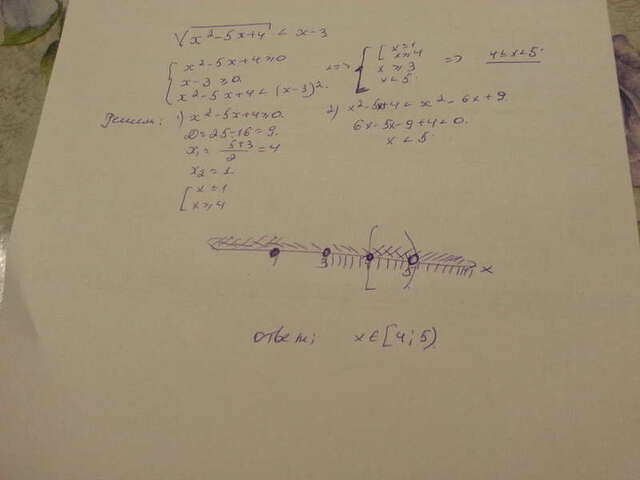 √(x²-5x+4) < x-3
{ x²-5x+4≥0
x-3≥0
x²-5x+4<(x-3)²
<=> { [ x≤1
x≥4
x≥3
x<5
=> 4≤x<5
Решаем: 1) x²-5x+4≥0.
D=25-16=9.
x₁= (5+3)/2 =4
x₂=1.
[ x≤1
x≥4
2) x²-5x+4<x²-6x+9.
6x-5x-9+4<0.
x<5
1 3 4 5 x
Ответ: x∈[4;5)